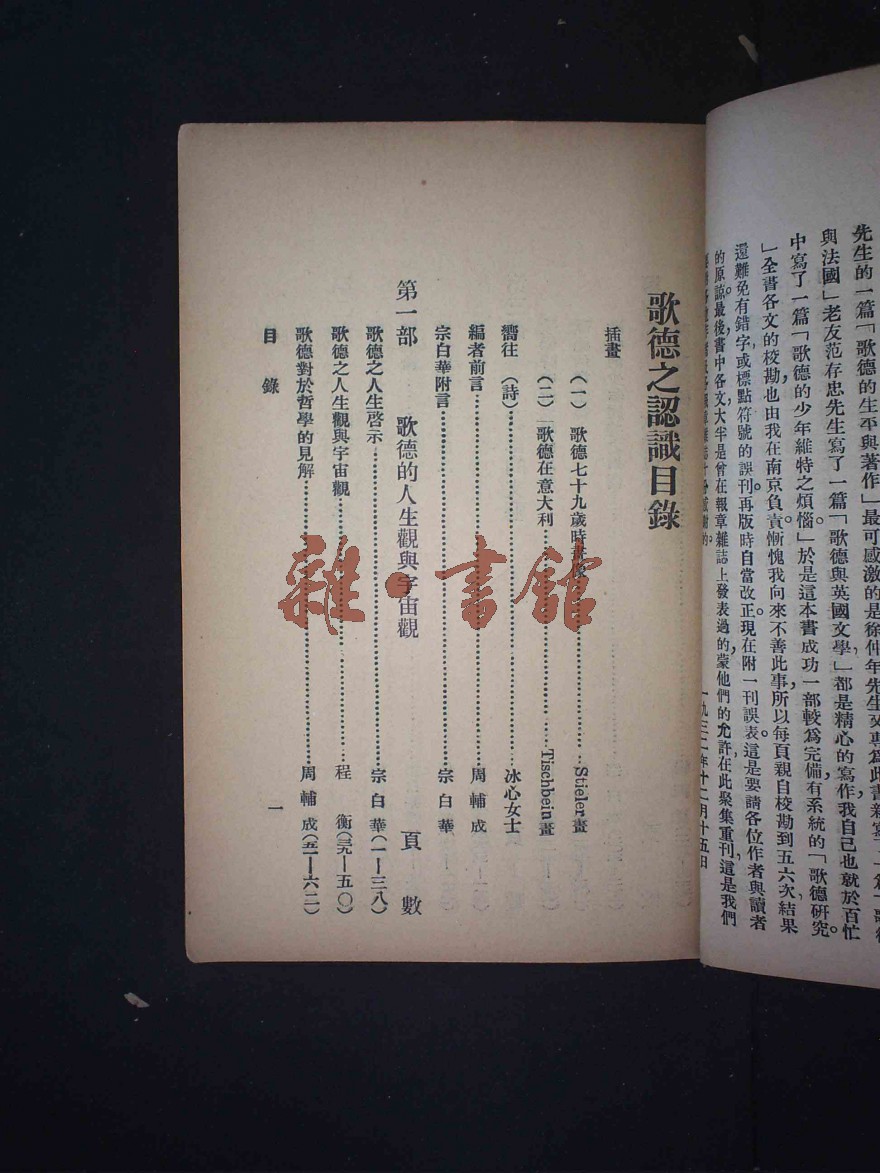 先生的一篇「歌德的生平與著作」最可感激的是徐仲年先生又專爲此書新寫了一篇「歌德
與法國」老友范存忠先生寫了一篇「歌德與英國文學」都是精心的寫作我自己也就於百忙
中寫了一篇「歌德的少年維特之煩惱」於是這本書成功一部較爲完備有系統的「歌德研究。
」全書各文的校勘也由我在南京負責慚愧我向來不善此事所以每頁親自校勘到五六次結果
還難免有錯字或標點符號的誤刊再版時自當改正現在附一刊誤表這是要請各位作者與讀者
的原諒。最後書中各文大半是曾在報章雜誌上發表過的蒙他們的允許在此聚集重刊這是我們
一九三二年十二月十五日
歌德之認識目錄
插畫
(一) 歌德七十九歲時畫像 Stieler畫
(二) 歌德在意大利 Tischbein畫
嚮往 (詩) 冰心女士
編者前言 周輔成
宗白華附言 宗白華
第一部 歌德的人生觀與宇宙觀 頁數
歌德之人生啓示 宗白華(一—三八)
歌德之人生觀與宇宙觀 程 衡(三九—五〇)
歌德對於哲學的見解 周輔成(五一—六二)
目錄 一
雜·書館